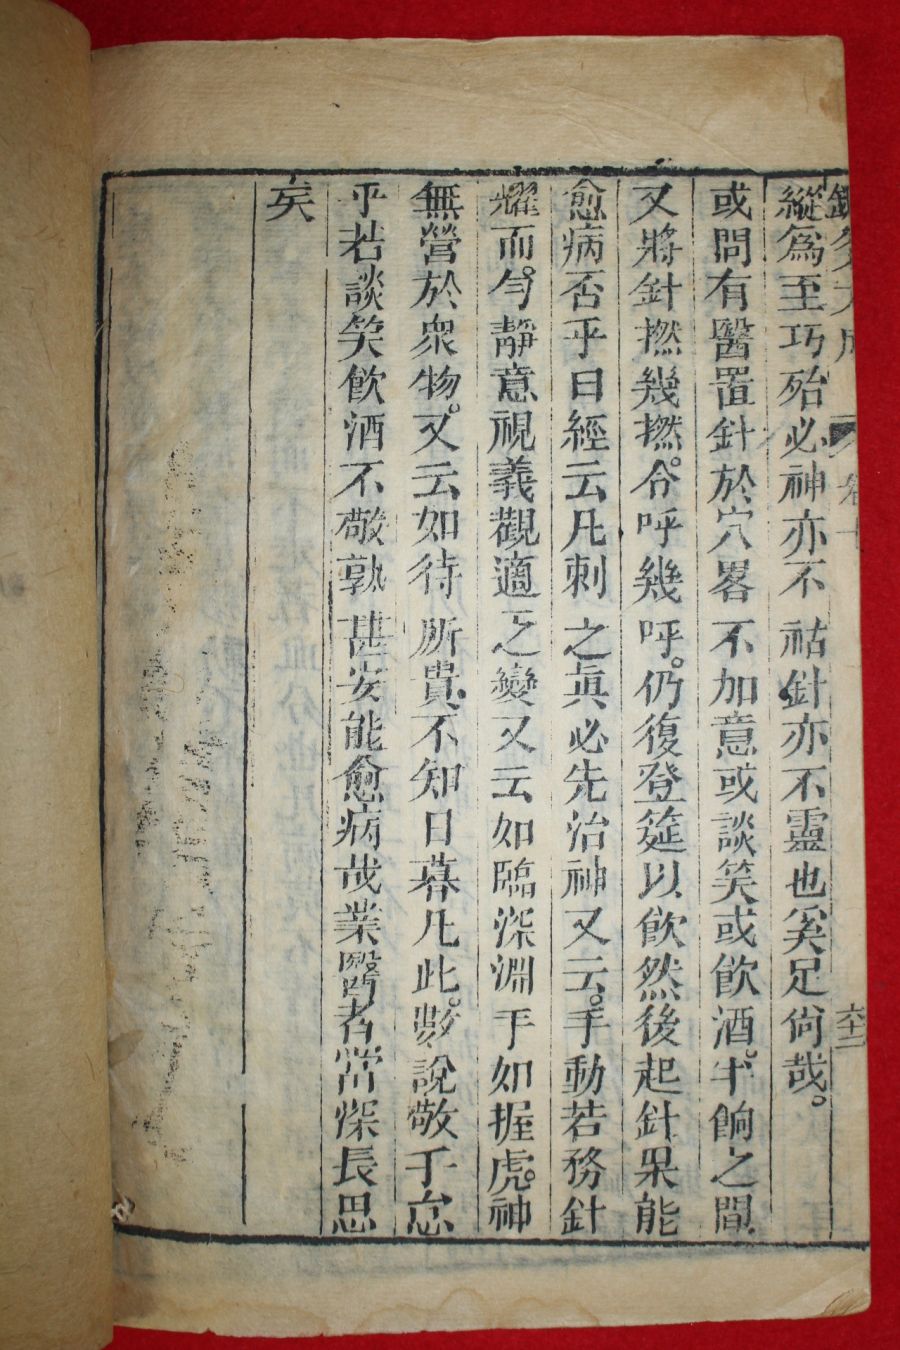 鍼灸大成 卷十 六十三
縱為至巧殆必神亦不祜針亦不靈也奚足尙哉。
或問有醫置針於穴畧不加意或談笑或飮酒。半餉之間
又將針撚幾撚。令呼幾呼。仍復登筵以飮然後起針果能
愈病否乎曰經云凡刺之眞必先治神又云。手動若務針
耀而勻。靜意視義觀適之變又云如臨深淵手如握虎。神
無營於衆物。又云如待所貴、不知日暮凡此。數說敬乎怠
乎若談笑飮酒不敬孰甚安能愈病哉業醫者當深長思
矣